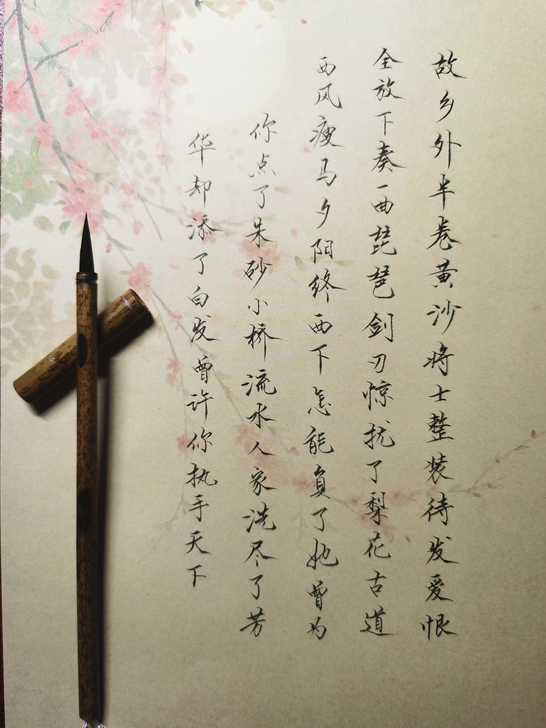 故乡外半卷黄沙将士整装待发爱恨
全放下奏一曲琵琶剑刃惊扰了梨花古道
西风瘦马夕阳终西下怎能负了她曾为
你点了朱砂小桥流水人家洗尽了芳
华却添了白发曾许你执手天下